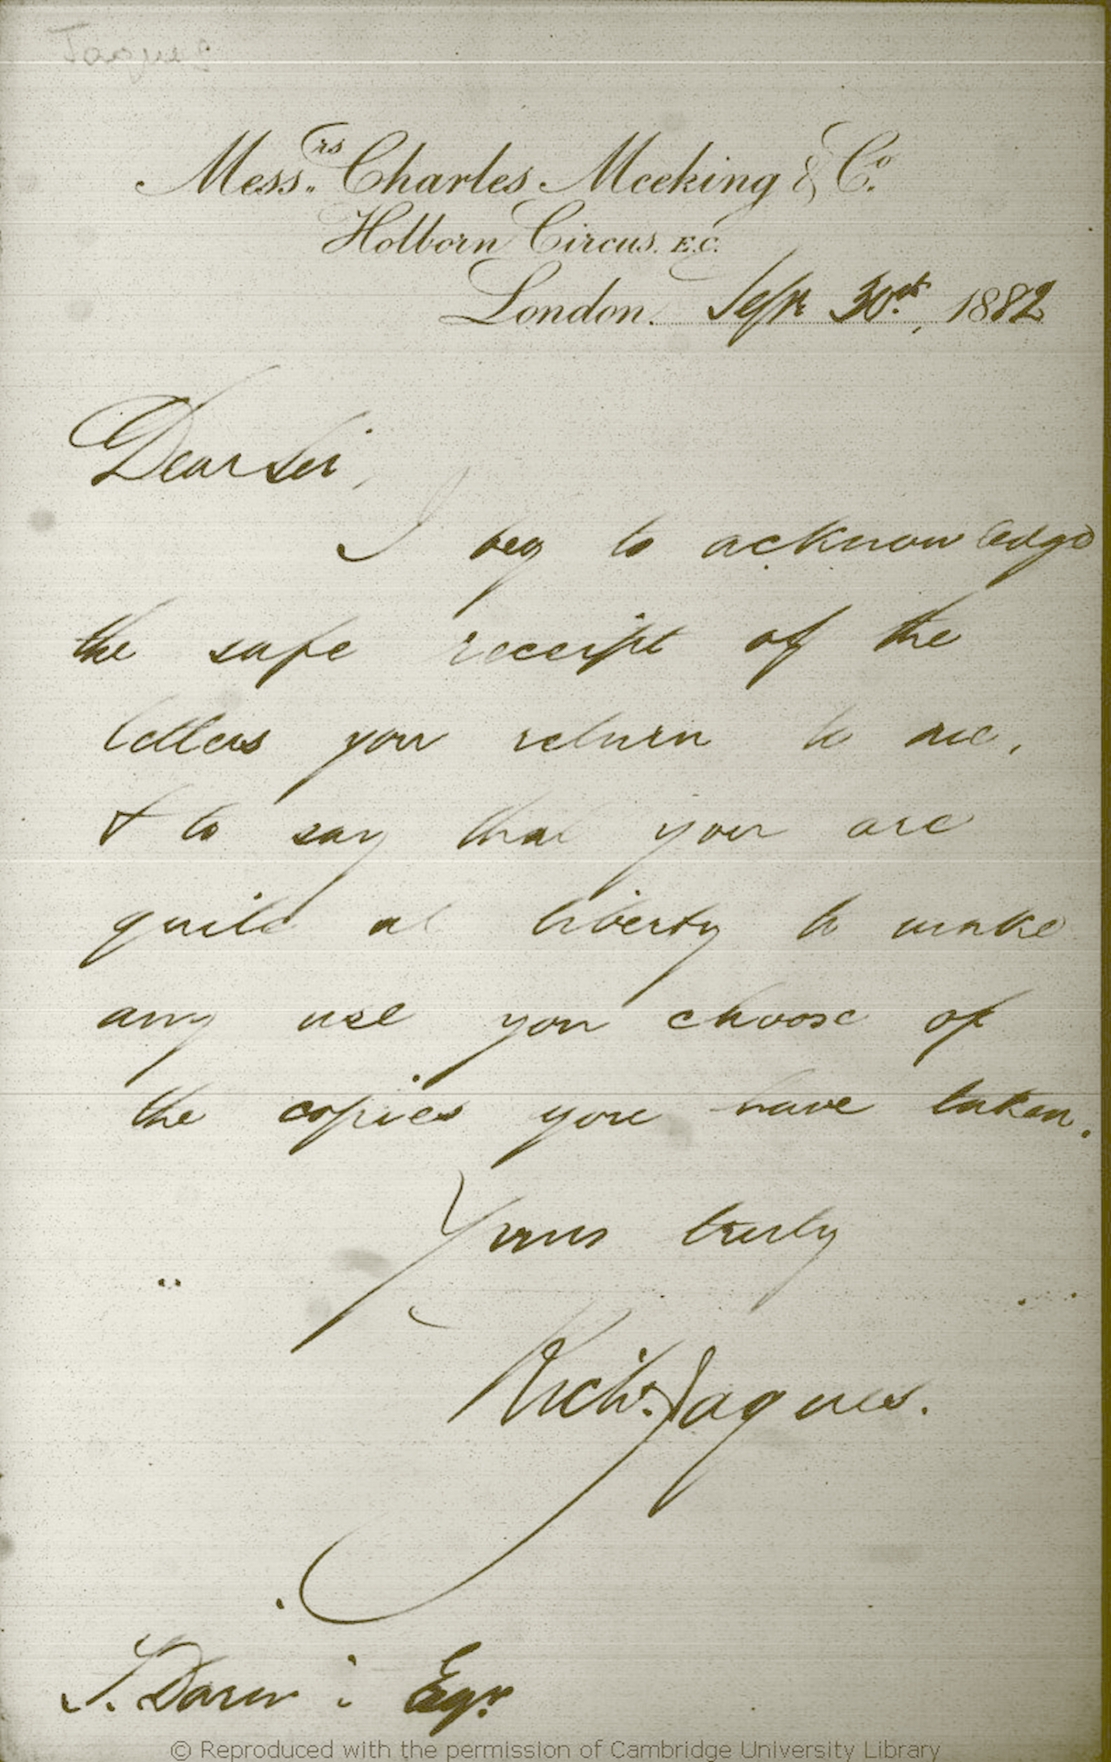 Jaques
Messrs. Charles Meeking & Co.
Holborn Circus. E.C.
London. Sept 30th, 1882
Dear Sir,
I beg to acknowledge
the safe receipt of the
letters you return to me,
& to say that you are
quite at liberty to make
any use you choose of
the copies you have taken.
Yours truly
Richd. Jaques.
Esqr.
© Reproduced with the permission of Cambridge University Library